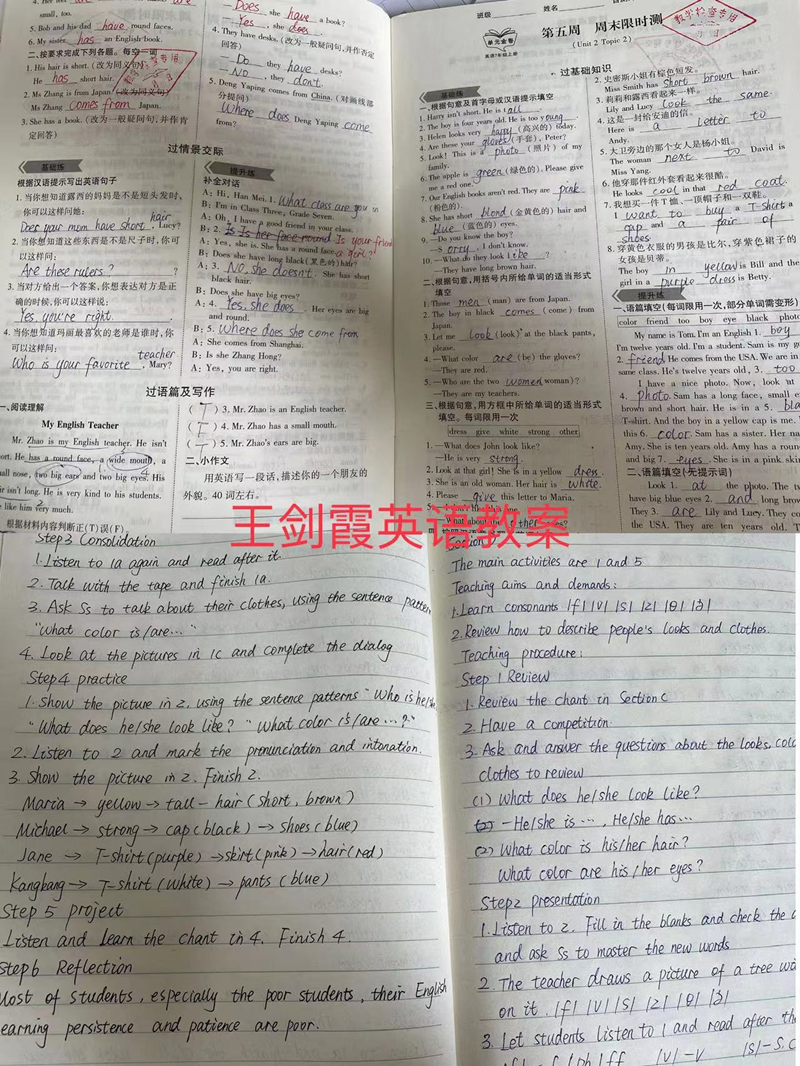 small, too.
5. Bob and his dad have round faces.
6. My sister has an English book.
二、按要求完成下列各题。每空一词
1. His hair is short. (改为同义句)
He has short hair.
2. Ms Zhang is from Japan. (改为同义句)
Ms Zhang comes from Japan.
3. She has a book. (改为一般疑问句,并作肯
定回答)
Does she have a book?
Yes, she does.
4. They have desks. (改为一般疑问句,并作否定
回答)
— Do they have desks?
— No, they don't.
5. Deng Yaping comes from China. (对画线部
分提问)
Where does Deng Yaping come
from?
过情景交际
基础练
根据汉语提示写出英语句子
1. 当你想知道露西的妈妈是不是短头发时,
你可以这样问她:
Does your mom have short hair, Lucy?
2. 当你想知道这些东西是不是尺子时,你可
以这样问:
Are these rulers ?
3. 当对方给出一个答案,你想表达对方是正
确的时候,你可以这样说:
Yes, you're right.
4. 当你想知道玛丽最喜欢的老师是谁时,你
可以这样问:
Who is your favorite teacher, Mary?
提升练
补全对话
A: Hi, Han Mei. 1. What class are you in
B: I'm in Class Three, Grade Seven.
A: Oh, I have a good friend in your class.
B: 2. Is Is her face round Is your friend a girl?
A: Yes, she is. She has a round face.
B: Does she have long black(黑色的) hair?
A: 3. No, she doesn't. She has short
black hair.
B: Does she have big eyes?
A: 4. Yes, she does. Her eyes are big
and round.
B: 5. Where does she come from
A: She comes from Shanghai.
B: Is she Zhang Hong?
A: Yes, you are right.
过语篇及写作
一、阅读理解
My English Teacher
Mr. Zhao is my English teacher. He isn't
tall. He has a round face, a wide mouth, a
small nose, two big ears and two big eyes. His
hair isn't long. He is very kind to his students.
like him very much.
根据材料内容判断正(T)误(F)。
( T ) 3. Mr. Zhao is an English teacher.
( T ) 4. Mr. Zhao has a small mouth.
( T ) 5. Mr. Zhao's ears are big.
二、小作文
用英语写一段话,描述你的一个朋友的
外貌。40 词左右。
班级 姓名
单元金卷
英语7年级上册
第五周 周末限时测
(Unit 2 Topic 2)
教学检查专用
过基础知识
基础练
一、根据句意及首字母或汉语提示填空
1. Harry isn't short. He is tall.
2. The boy is four years old. He is too young.
3. Helen looks very happy (高兴的) today.
4. Are these your gloves(手套), Peter?
5. Look! This is a photo (照片) of my
family.
6. The apple is green(绿色的). Please give
me a red one.
7. Our English books aren't red. They are pink
(粉色的).
8. She has short blond (金黄色的) hair and
blue (蓝色的) eyes.
9. —Do you know the boy?
—Sorry, I don't know.
10. —What do they look like ?
—They have long brown hair.
二、根据句意,用括号内所给单词的适当形式
填空
1. Those men (man) are from Japan.
2. The boy in black comes (come) from
Japan.
3. Let me look (look) at the black pants,
please.
4. —What color are (be) the gloves?
—They are red.
5. —Who are the two women (woman)?
—They are my teachers.
三、根据句意,用方框中所给单词的适当形式
填空。每词限用一次
dress give white strong other
1. —What does John look like?
—He is very strong.
2. Look at that girl! She is in a yellow dress.
3. She is an old woman. Her hair is white.
4. Please give this letter to Maria.
What about the other
2. 史密斯小姐有棕色短发。
Miss Smith has short brown hair.
3. 莉莉和露西看起来一样。
Lily and Lucy look the same.
4. 这是一封给安迪的信。
Here is a letter to
Andy.
5. 大卫旁边的那个女人是杨小姐。
The woman next to David is
Miss Yang.
6. 他穿那件红外套看起来很酷。
He looks cool in that red coat.
7. 我想买一件 T恤、一顶帽子和一双鞋。
I want to buy a T-shirt a
cap and a pair of
shoes
8. 穿黄色衣服的男孩是比尔,穿紫色裙子的
女孩是贝蒂。
The boy in yellow is Bill and the
girl in a purple dress is Betty.
提升练
一、语篇填空(每词限用一次,部分单词需变形)
color friend too boy eye black photo
My name is Tom. I'm an English 1. boy
I'm twelve years old. I'm a student. Sam is my g
2. friend. He comes from the USA. We are in
same class. He's twelve years old, 3. too
I have a nice photo. Now, look at
4. photo. Sam has a long face, small e
brown and short hair. He is in a 5. bla
T-shirt. And the boy in a yellow cap is me.
this 6. color. Sam has a sister. Her na
Amy. She is ten years old. Amy has a roun
and big 7. eyes. She is in a pink skir
二、语篇填空(无提示词)
Look 1. at the photo. The tw
have big blue eyes 2. and long brow
They 3. are Lily and Lucy. They c
the USA. They are ten years old. T
王剑霞英语教案
Step3 Consolidation
1. Listen to 1a again and read after it.
2. Talk with the tape and finish 1a.
3. Ask Ss to talk about their clothes, using the sentence pattern
"What color is/are..."
4. Look at the pictures in 1c and complete the dialog
Step4 practice
1. Show the picture in 2, using the sentence patterns "Who is he/she
"What does he/she look like?" "What color is/are...?"
2. Listen to 2 and mark the pronunciation and intonation.
3. Show the picture in 2. Finish 2.
Maria → yellow → tall - hair (short, brown)
Michael → strong → cap(black) → shoes(blue)
Jane → T-shirt(purple) → skirt(pink) → hair(red)
Kangkang → T-shirt (white) → pants (blue)
Step 5 project
Listen and learn the chant in 4. Finish 4.
Step6 Reflection
Most of students, especially the poor students, their English
learning persistence and patience are poor.
Section D
The main activities are 1 and 5
Teaching aims and demands:
1. Learn consonants /f/ /v/ /s/ /z/ /θ/ /ð/
2. Review how to describe people's looks and clothes.
Teaching procedure:
Step 1 Review
1. Review the chart in Section C
2. Have a competition.
3. Ask and answer the questions about the looks, colo
clothes to review
(1) What does he/she look like?
- He/she is ..., He/she has...
(2) What color is his/her hair?
What color are his/her eyes?
Step2 presentation
1. Listen to 2. Fill in the blanks and check the a
and ask Ss to master the new words
2. The teacher draws a picture of a tree wi
on it. /f/ /v/ /s/ /z/ /θ/ /ð/
3. Let students listen to 1 and read after the
/f/-f ph ff /v/-v /s/-s.c